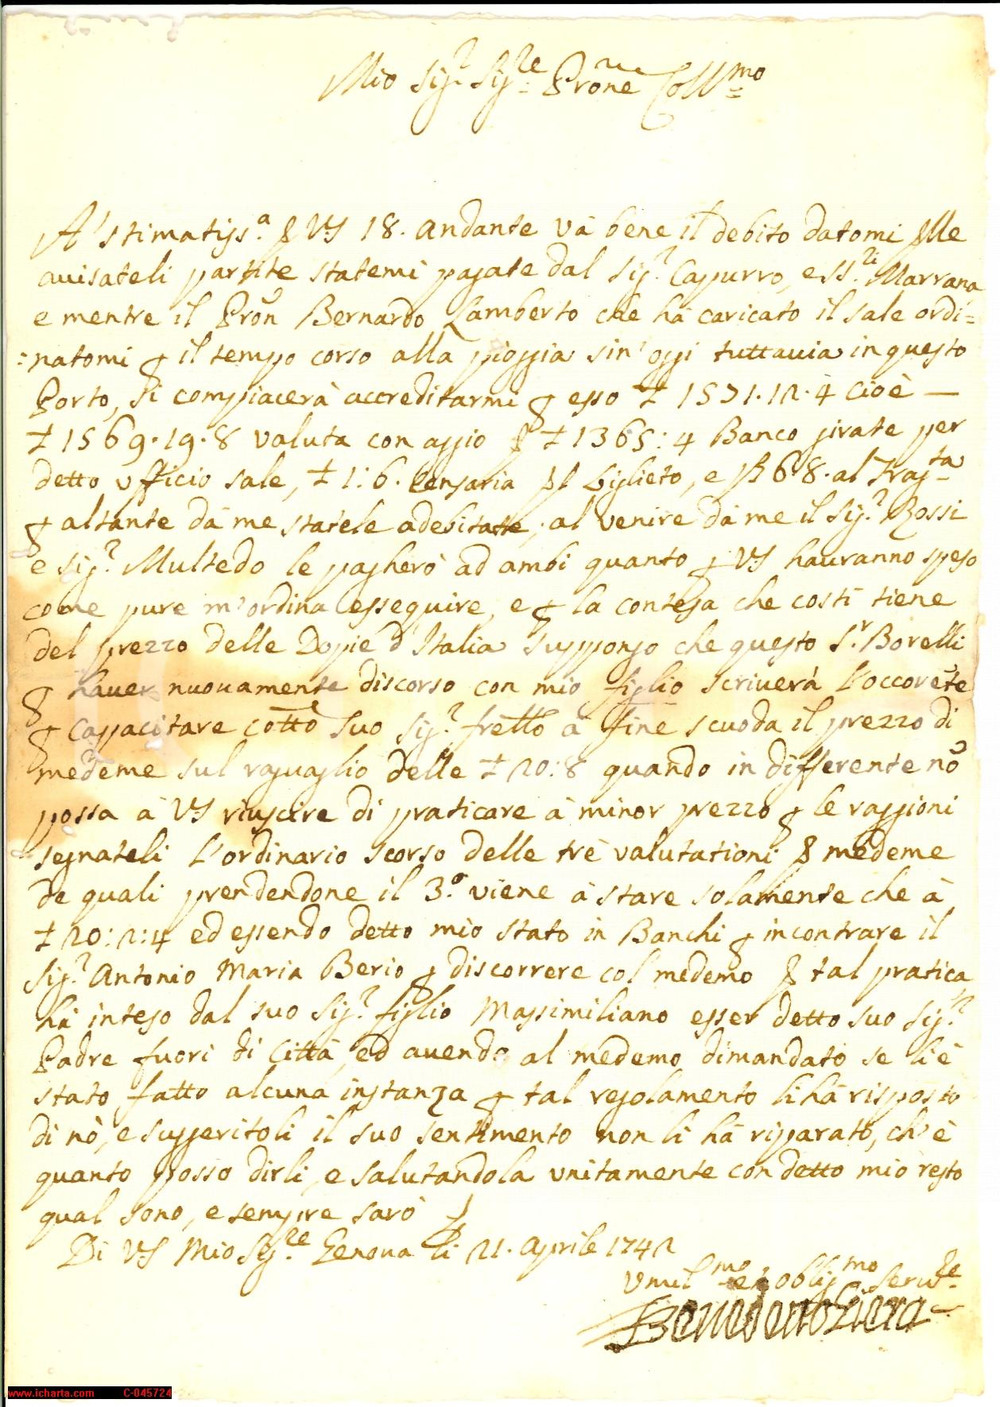 Mio Sig.r Sig.re Prõne Coll.mo
A' stimatiss.a p VS 18. andante và bene il debito datomi plle
auisateli partite statemi pagate dal Sig.r Capurro, e SS.ri Marrana
e mentre il Prõn Bernardo Lamberto che hà caricato il sale ordi=
=natomi p il tempo corso alla pioggia sin'oggi tuttauia in questo
Porto, si compiacerà accreditarmi p esso £ 1571.12.4 Cioè —
£ 1569.19.8 valuta con aggio p £ 1365:4 Banco girate per
detto ufficio sale, £ 1:6. Censaria pl biglieto, e p 68. al Trag.ta
p altante dà me statele adebitate, al venire dà me il Sig.r Rossi
e Sig.r Multedo le pagherò ad ambi quanto p VS hauranno speso
come pure m'ordina esseguire, e p la contesa che costì tiene
del prezzo delle Dopie d'Italia suppongo che questo S.r Borelli
p hauer nuouamente discorso con mio figlio scriuerà l'occorẽte
p Cappacitare cottõ suo Sig.r frẽllo à fine scuoda il prezzo di
medeme sul raguaglio delle £ 20:8 quando in differente nõ
possa à VS riuscire di praticare à minor prezzo p le raggioni
segnateli l'ordinario scorso delle trè valutationi p medeme
de quali prendendone il 3.o viene à stare solamente che à
£ 20:2:4 ed essendo detto mio stato in Banchi p incontrare il
Sig.r Antonio Maria Berio p discorrere col medemo p tal pratica
hà inteso dal suo Sig.r figlio Massimiliano esser detto suo Sig.r
Padre fuori di Città, ed auendo al medemo dimandato se li è
stato fatto alcuna instanza p tal regolamento li hà risposto
di nò, e suggeritoli il suo sentimento non li hà riparato, ch'è
quanto posso dirli, e salutandola unitamente con detto mio resto
qual sono, e sempre sarò
Di VS Mio Sig.re Genoua li 21. Aprile 1742
Umil.mo ed oblig.mo seru.re
Benedetto Viera
www.icharta.com C-045724